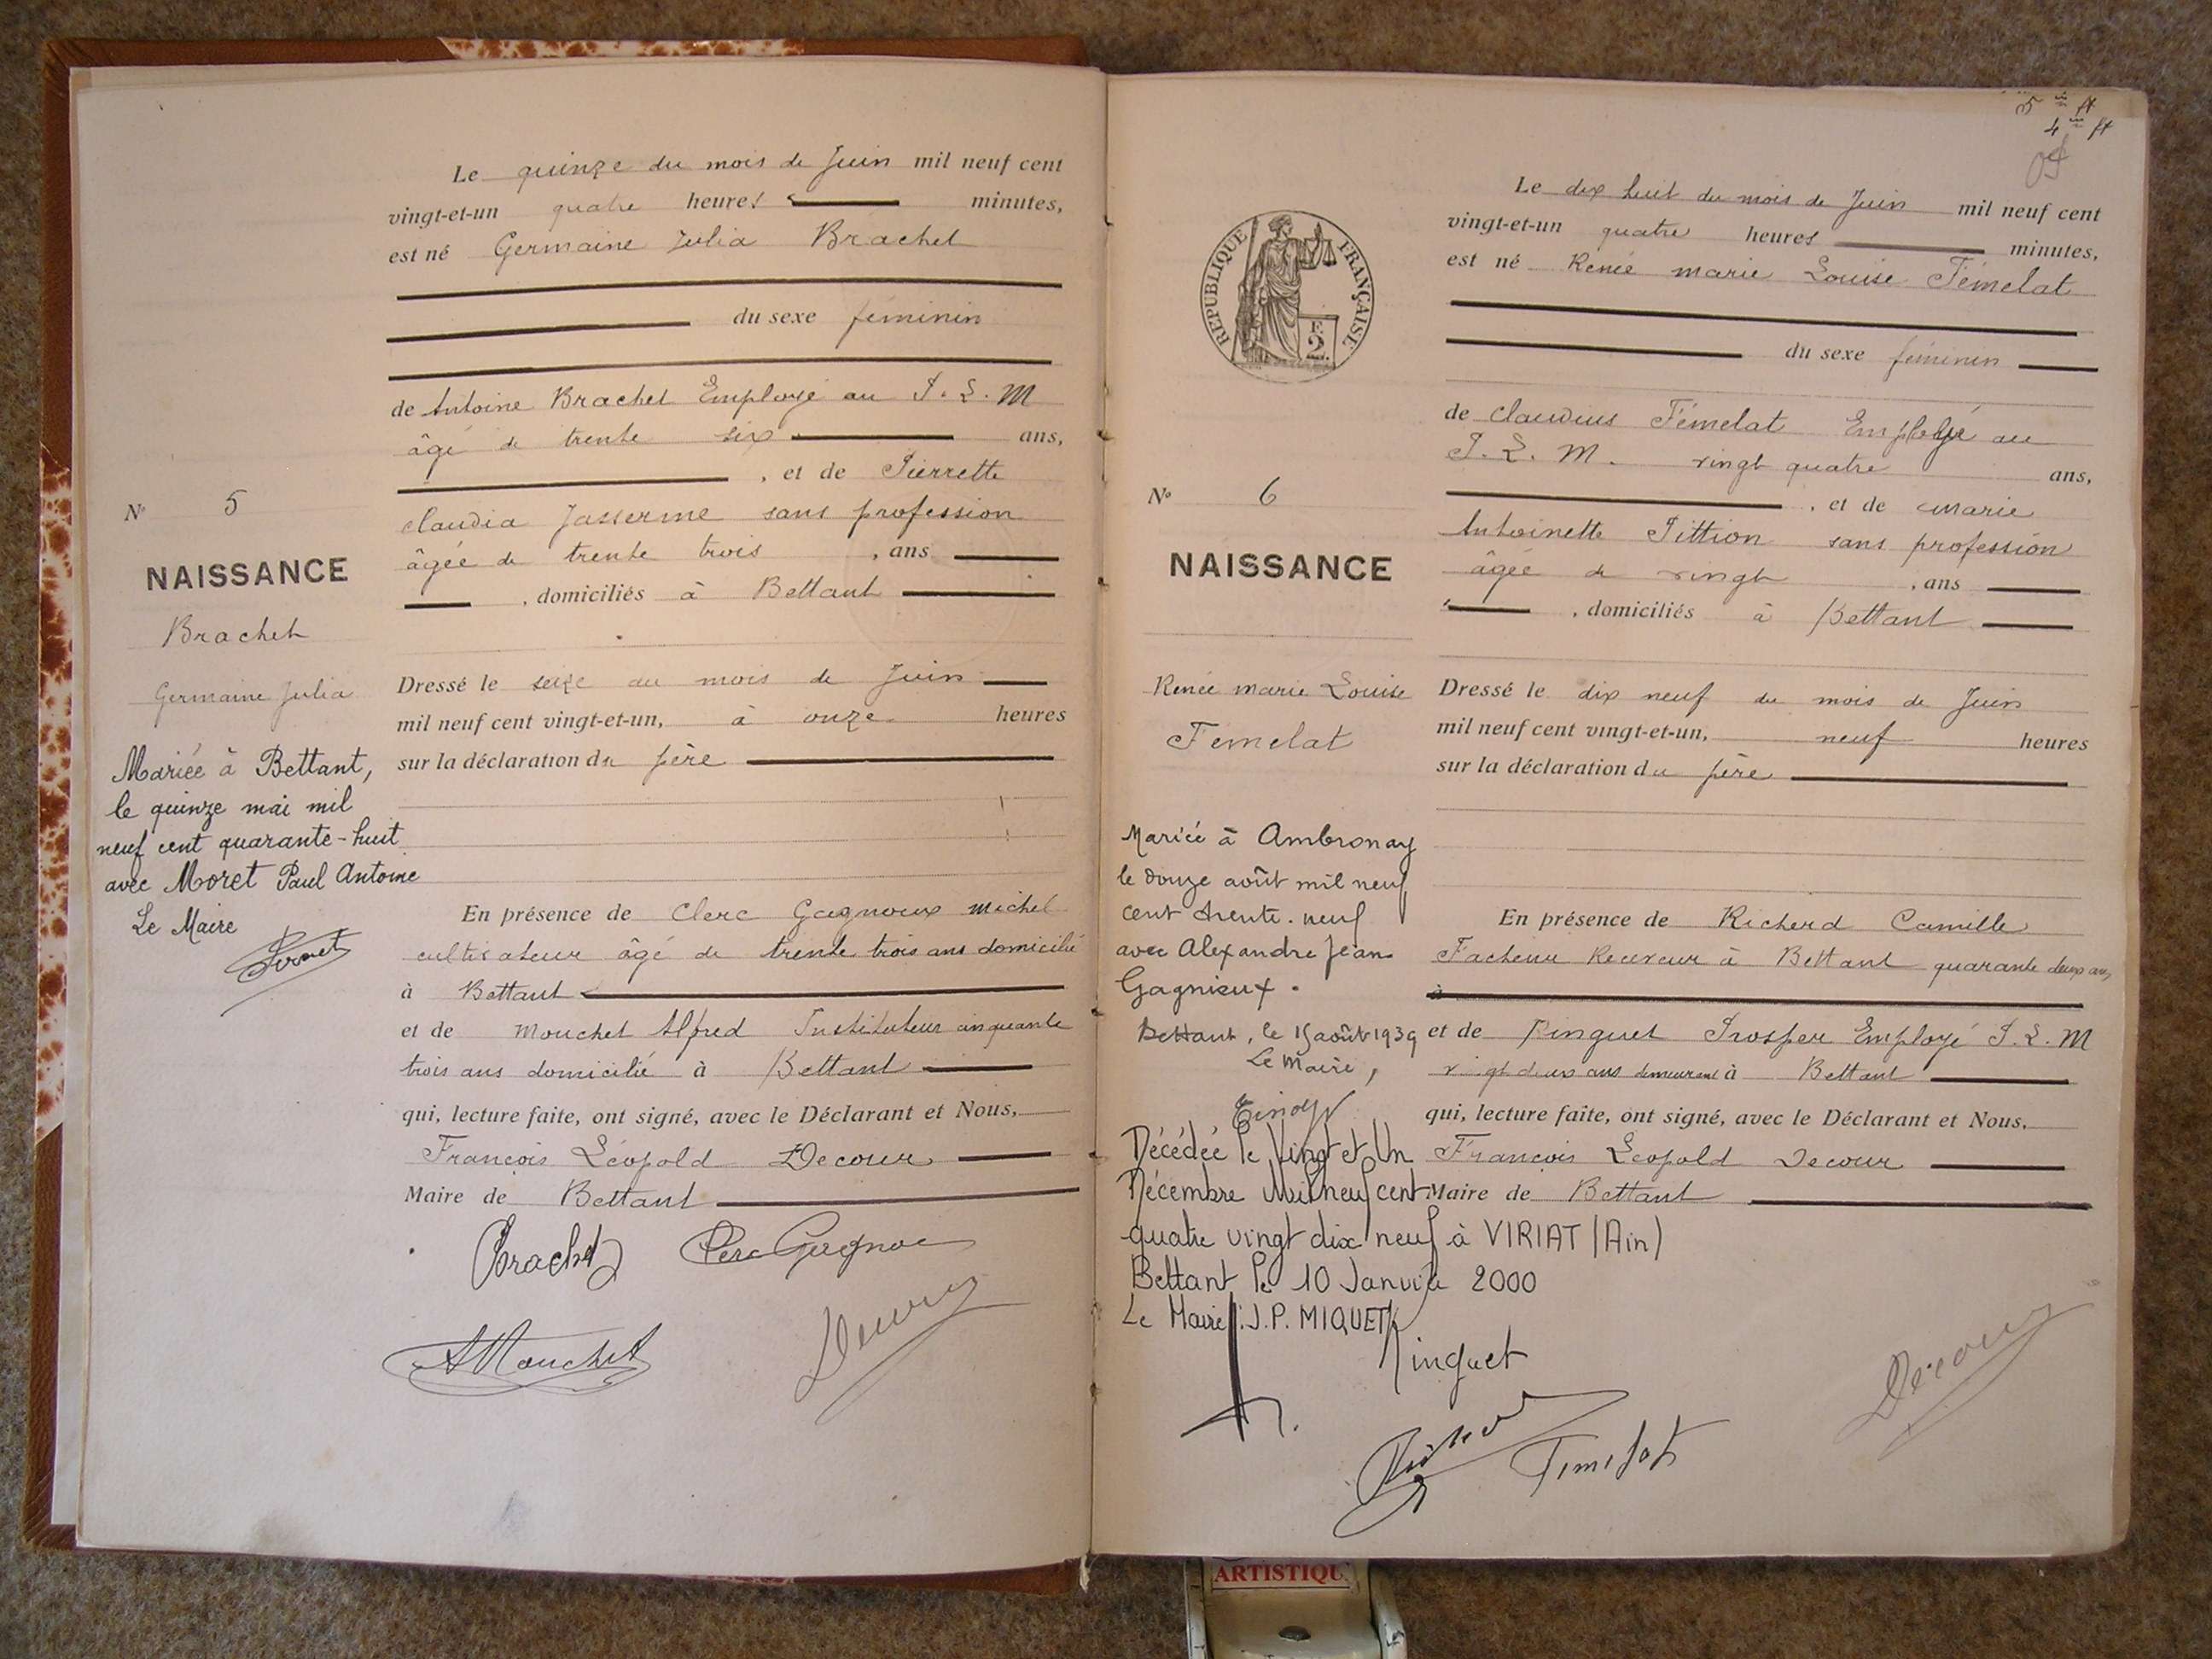 Le quinze du mois de Juin mil neuf cent
vingt-et-un quatre heures minutes,
est né Germaine Julia Brachet
du sexe féminin
de Antoine Brachet Employé au P. L. M
âgé de trente six ans,
, et de Pierrette
Claudia Jasserme sans profession
âgée de trente trois , ans
, domiciliés à Bettant
Dressé le seize du mois de Juin
mil neuf cent vingt-et-un, à onze heures
sur la déclaration du père
En présence de Clerc Gagnoux Michel
cultivateur âgé de trente trois ans domicilié
à Bettant
et de Mouchet Alfred Instituteur cinquante
trois ans domicilié à Bettant
qui, lecture faite, ont signé, avec le Déclarant et Nous,
François Léopold Decour
Maire de Bettant
Brachet
AMouchet
Decour
N° 5
NAISSANCE
Brachet
Germaine Julia
Mariée à Bettant,
le quinze mai mil
neuf cent quarante-huit
avec Moret Paul Antoine
Le Maire
5 ft
4 ft
REPUBLIQUE FRANÇAISE
2
Le dix huit du mois de Juin mil neuf cent
vingt-et-un quatre heures minutes,
est né Renée marie Louise Fémelat
du sexe féminin
de Claudius Fémelat Employé au
P. L. M. vingt quatre ans,
, et de Marie
Antoinette Pittion sans profession
âgée de vingt , ans
, domiciliés à Bettant
Dressé le dix neuf du mois de Juin
mil neuf cent vingt-et-un, neuf heures
sur la déclaration du père
En présence de Richerd Camille
Facteur Receveur à Bettant quarante deux ans,
à
et de Pinguet Prosper Employé P. L. M
vingt deux ans demeurant à Bettant
qui, lecture faite, ont signé, avec le Déclarant et Nous,
François Léopold Decour
Maire de Bettant
N° 6
NAISSANCE
Renée marie Louise
Femelat
Mariée à Ambronay
le douze août mil neuf
cent trente-neuf
avec Alexandre Jean
Gagnieux.
Bettant, le 15 août 1939
Le Maire,
Décédée le Vingt et Un
Décembre Mil neuf cent
quatre vingt dix neuf à VIRIAT (Ain)
Bettant le 10 Janvier 2000
Le Maire : J.P. MIQUET
Pinguet
Femelat
Decour
ARTISTIQU